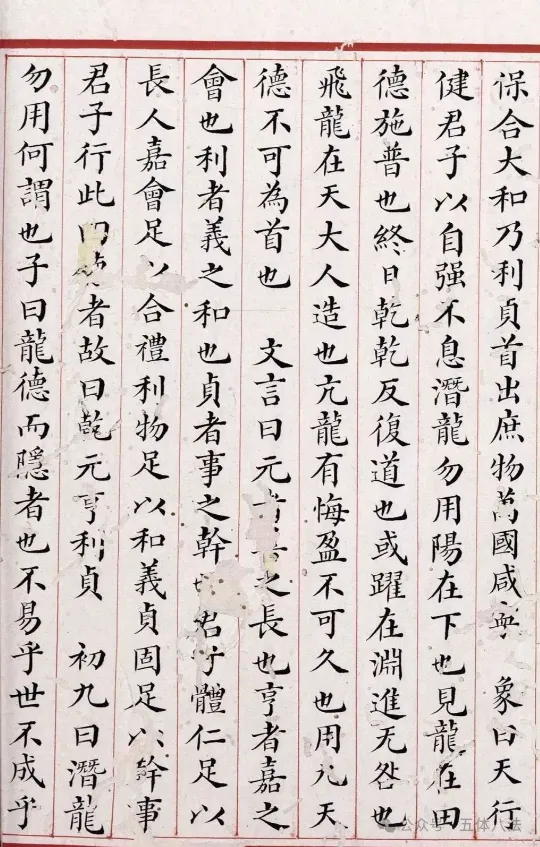 保合大和乃利貞首出庶物萬國咸寧 象曰天行
健君子以自强不息潛龍勿用陽在下也見龍在田
德施普也終日乾乾反復道也或躍在淵進无咎也
飛龍在天大人造也亢龍有悔盈不可久也用九天
德不可為首也 文言曰元者之長也亨者嘉之
會也利者義之和也貞者事之幹君子體仁足以
長人嘉會足以合禮利物足以和義貞固足以幹事
君子行此四德者故曰乾元亨利貞 初九曰潛龍
勿用何謂也子曰龍德而隱者也不易乎世不成乎
公众号·五体八法